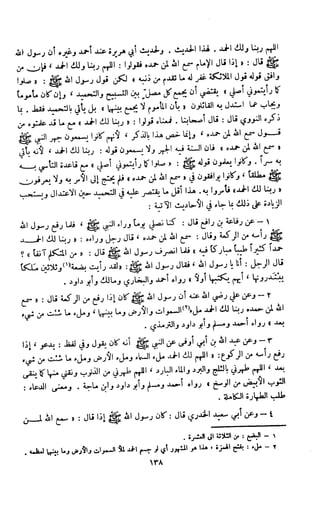 اللهم ربنا ولك الحمد. لهذا الحديث. ولحديث أبي هريرة عند أحمد وغيره أن رسول الله
ﷺ قال: «إذا قال الإمام سمع الله لمن حمده فقولوا: اللهم ربنا ولك الحمد، فإن من
وافق قوله قول الملائكة غفر له ما تقدم من ذنبه» لكن قول رسول الله ﷺ: «صلوا
كما رأيتموني أصلي» يقتضي أن يجمع كل مصل بين التسبيح والتحميد، وإن كان مأموماً
ويجاب عما استدل به القائلون «بأن المأموم لا يجمع بينهما» بل يأتي بالتحميد فقط. بما
ذكره النووي قال: قال أصحابنا. فمعناه قولوا: «ربنا لك الحمد» مع ما قد علمتوه من
قول سمع الله لمن حمده، وإنما خص هذا بالذكر، لأنهم كانوا يسمعون جهر النبي ﷺ
بـ «سمع الله لمن حمده» فإن السنة فيه الجهر ولا يسمعون قوله: ربنا لك الحمد، لأنه يأتي
به سراً. وكانوا يعلمون قوله ﷺ: «صلوا كما رأيتموني أصلي» مع قاعدة التأسي به
ﷺ مطلقاً، وكانوا يوافقون في «سمع الله لمن حمده» فلم يحتج إلى الأمر به ولا يعرفون
«ربنا لك الحمد» فأمروا به. هذا أقل ما يقتصر عليه في التحميد حين الاعتدال ويستحب
الزيادة على ذلك بما جاء في الأحاديث الآتية:
١ – عن رفاعة بن رافع قال: كنا نصلي يوماً وراء النبي ﷺ، فلما رفع رسول الله
ﷺ رأسه من الركعة وقال: سمع الله لمن حمده، قال رجل وراءه: «ربنا لك الحمد
حمداً كثيراً طيباً مباركا فيه» فلما انصرف رسول الله ﷺ قال: «من المتكلم آنفاً»؟
قال الرجل: أنا يا رسول الله، فقال رسول الله ﷺ: «لقد رأيت بضعة(١) وثلاثين ملكاً
يبتدرونها، أيهم يكتبها أولا» رواه أحمد والبخاري ومالك وأبو داود.
٢ – وعن علي رضي الله عنه أن رسول الله ﷺ كان إذا رفع من الركعة قال: «سمع
الله لمن حمده ربنا لك الحمد ملء(٢) السموات والأرض وما بينهما، وملء ما شئت من شيء
بعد» رواه أحمد ومسلم وأبو داود والترمذي.
٣ – وعن عبد الله بن أبي أوفى عن النبي ﷺ أنه كان يقول وفي لفظ: يدعو، إذا
رفع رأسه من الركوع: «اللهم لك الحمد ملء السماء وملء الأرض وملء ما شئت من شيء
بعد، اللهم طهرني بالثلج والبرد والماء البارد، اللهم طهرني من الذنوب ونقني منها كما ينقى
الثوب الأبيض من الوسخ» رواه أحمد ومسلم وأبو داود وابن ماجة. ومعنى الدعاء:
طلب الطهارة الكاملة.
٤ – وعن أبي سعيد الخدري قال: كان رسول الله ﷺ إذا قال: «سمع الله لمن
١ – البضع: من الثلاثة الى العشرة.
٢ – ملء: بفتح الهمزة، هذا هو المشهور أي لو جسم الحمد لملأ السموات والأرض وما بينهما لعظمه.
١٣٨